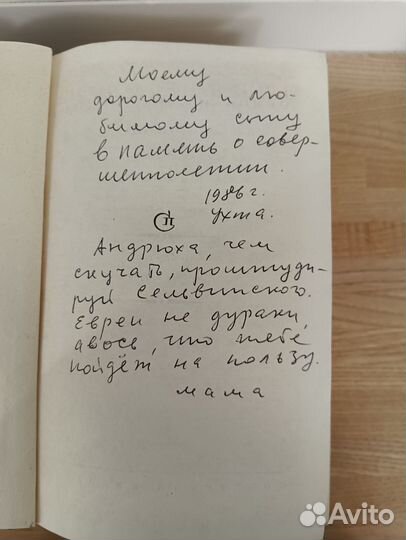 Моему
дорогому и лю-
бимому сыну
в память о совер-
шеннолетии.
1986 г.
Ухта.
Андрюха, чем
скучать, проштуди-
руй Сельвинского.
Евреи не дураки,
авось, что тебе
пойдёт на пользу.
мама
Avito